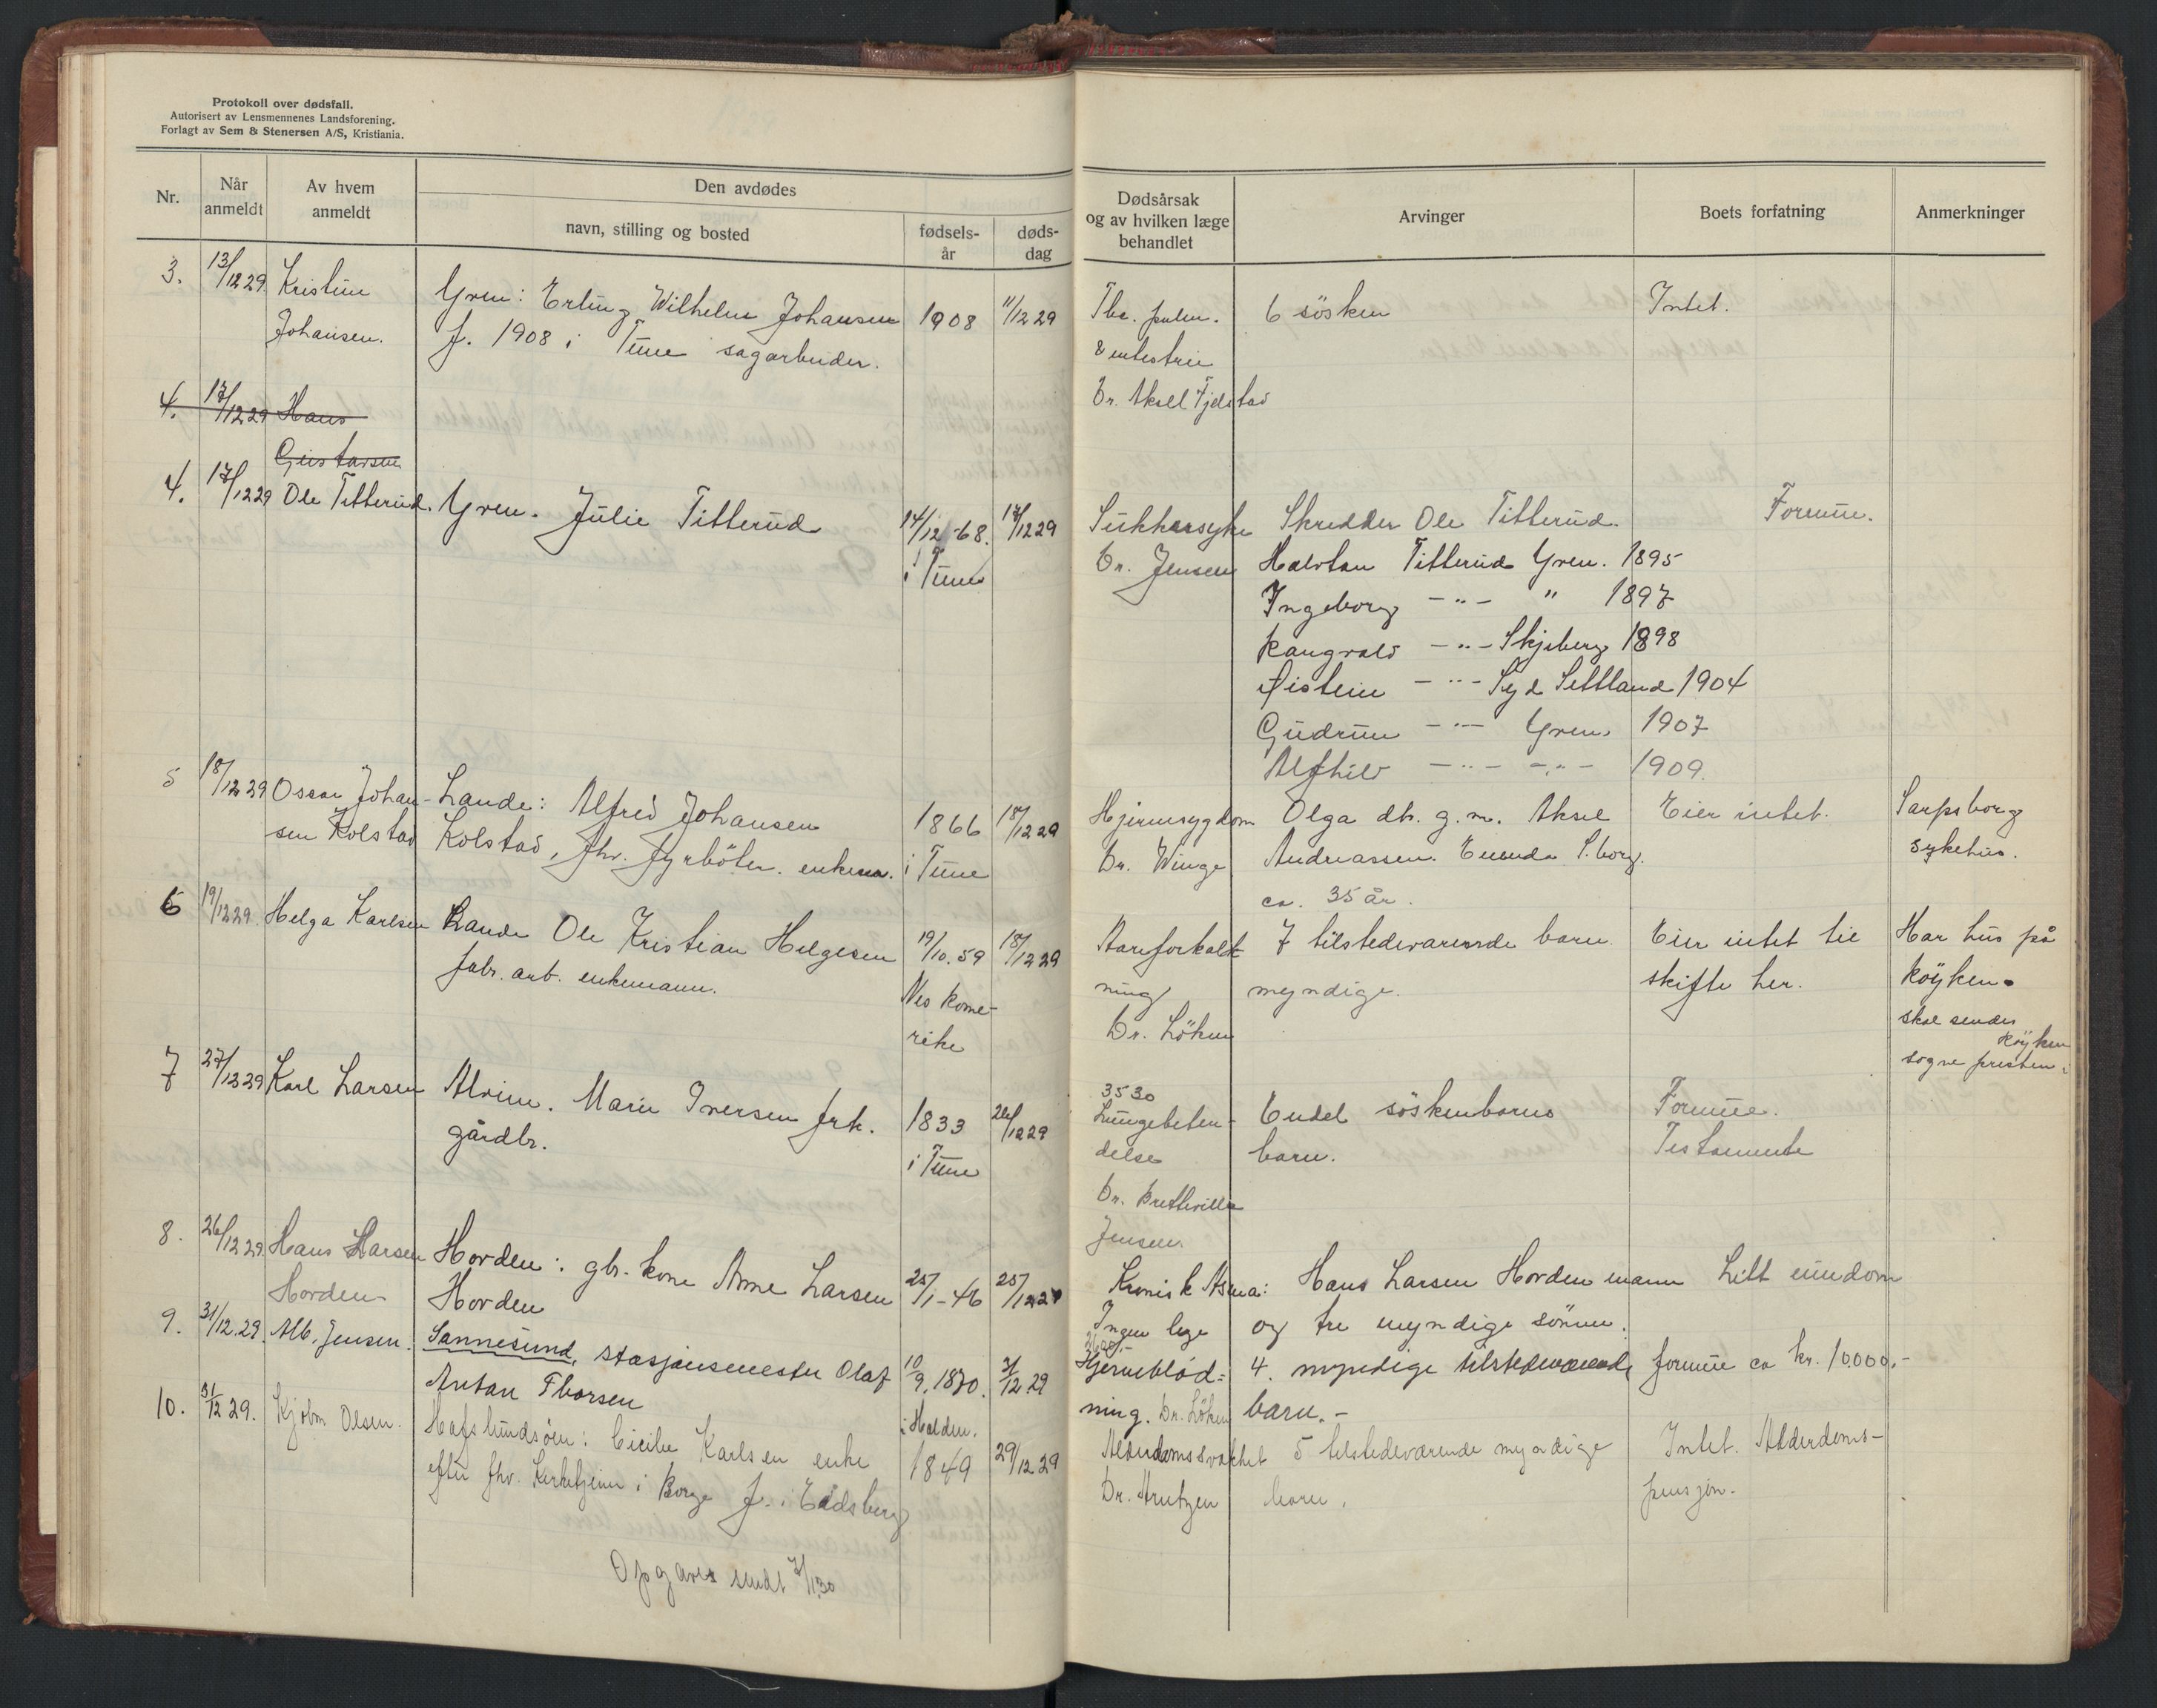 Protokoll over dødsfall.
Autorisert av Lensmennenes Landsforening.
Forlagt av Sem & Stenersen A/S, Kristiania.
Nr.
Når anmeldt
Av hvem anmeldt
Den avdødes
navn, stilling og bosted
fødselsår
dødsdag
Dødsårsak og av hvilken læge behandlet
Arvinger
Boets forfatning
Anmerkninger
3. 13/12 29 Kristine Yven: Erling Wilhelm Johansen 1908 11/12 29 Tbc. pulm. 6 sösken Intet.
Johansen. f. 1908 i Tune sagarbeider.
Dr. Aksel Fjelstad
4. 17/12 29 Hans
Gustavsen
4. 17/12 29 Ole Titterud. Yven. Julie Titterud 14/12-68. 17/12 29 Sukkersyke Skredder Ole Titterud. Formue.
i Tune Dr. Jensen Halvdan Titterud Yven. 1895
Ingeborg -"- " 1897
Rangvald -"- Skjeberg 1898
Øistein -"- Syd 1904
Gudrun -"- Yven. 1907
Alfhild -"- -"- 1909.
5 18/12 29 Oscar Johan- Lande: Alfred Johansen 1866 18/12 29 Hjernesygdom Olga dtr. g.m. Aksel Eier intet. Sarpsborg
sen Kolstad Kolstad, fhv. fyrböter. enkem. i Tune Dr. Winge Andreassen. S.borg. sykehus.
ca. 35 år.
6 19/12 29. Helga Karlsen Lande Ole Kristian Helgesen 19/10.59 18/12 29 Aareforkalk- 7 tilstedeværende barn Eier intet til Har hus på
fabr. arb. enkemann. Nes Rome- ning myndige. skifte her. Röyken.
rike Dr. Löken skal sendes Röyken
sogne presten i
7 27/12 29 Karl Larsen Alvim. Marie Iversen frk. 1833 26/12 29 3530 Lungebeten- Endel söskenbarns Formue.
gårdbr. i Tune delse barn. Testamente
Dr. Bretteville
Jensen.
8. 26/12 29. Hans Larsen Horden: gbr. kone Anne Larsen 25/1-46 25/12 29 Kronisk Asma: Hans Larsen Horden mann Litt eiendom
Horden Horden Ingen lege og tre myndige sönner.
9. 31/12.29. Alb. Jensen. Sannesund, stasjonsmester Olaf 10/9.1870. 31/12.29 Hjerneblöd- 4. myndige tilstedeværende formue ca kr. 10000.-
Anton Thorsen i Halden. ning. Dr. Löken barn.-
10. 31/12 29. Kjobm Olsen. Hafslundsöen: Cicilie Karlsen enke 1849 29/12 29 Alderdomssvakhet 5 tilstedeværende myndige Intet. Alderdoms-
efter fhv. kirketjener i Borge f. i Eidsberg Dr. Arntzen barn. pensjon.
Opgaves sendt 7/1 30